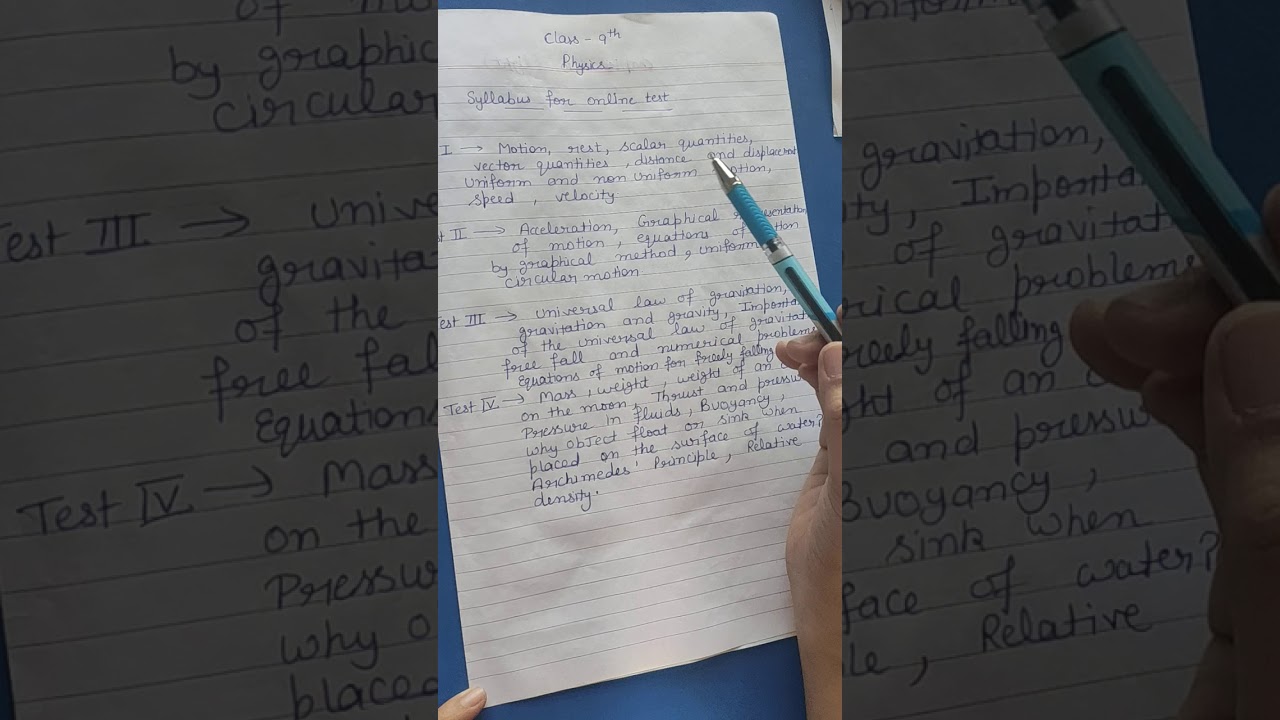 Class - 9th
Physics
Syllabus for online test
I → Motion, rest, scalar quantities,
vector quantities, distance and displacement
uniform and non uniform motion,
speed, velocity
st II → Acceleration, Graphical
of motion, equations of
by graphical method, uniform
circular motion
est III → Universal law of gravitation,
gravitation and gravity, Importa
of the universal law of gravitat
free fall and numerical problems
Equations of motion for freely falling
Test IV → Mass, weight, weight of an
on the moon, Thrust and pressu
Pressure in fluids, Buoyancy,
why object float or sink when
placed on the surface of water?
Archimedes' Principle, Relative
density.